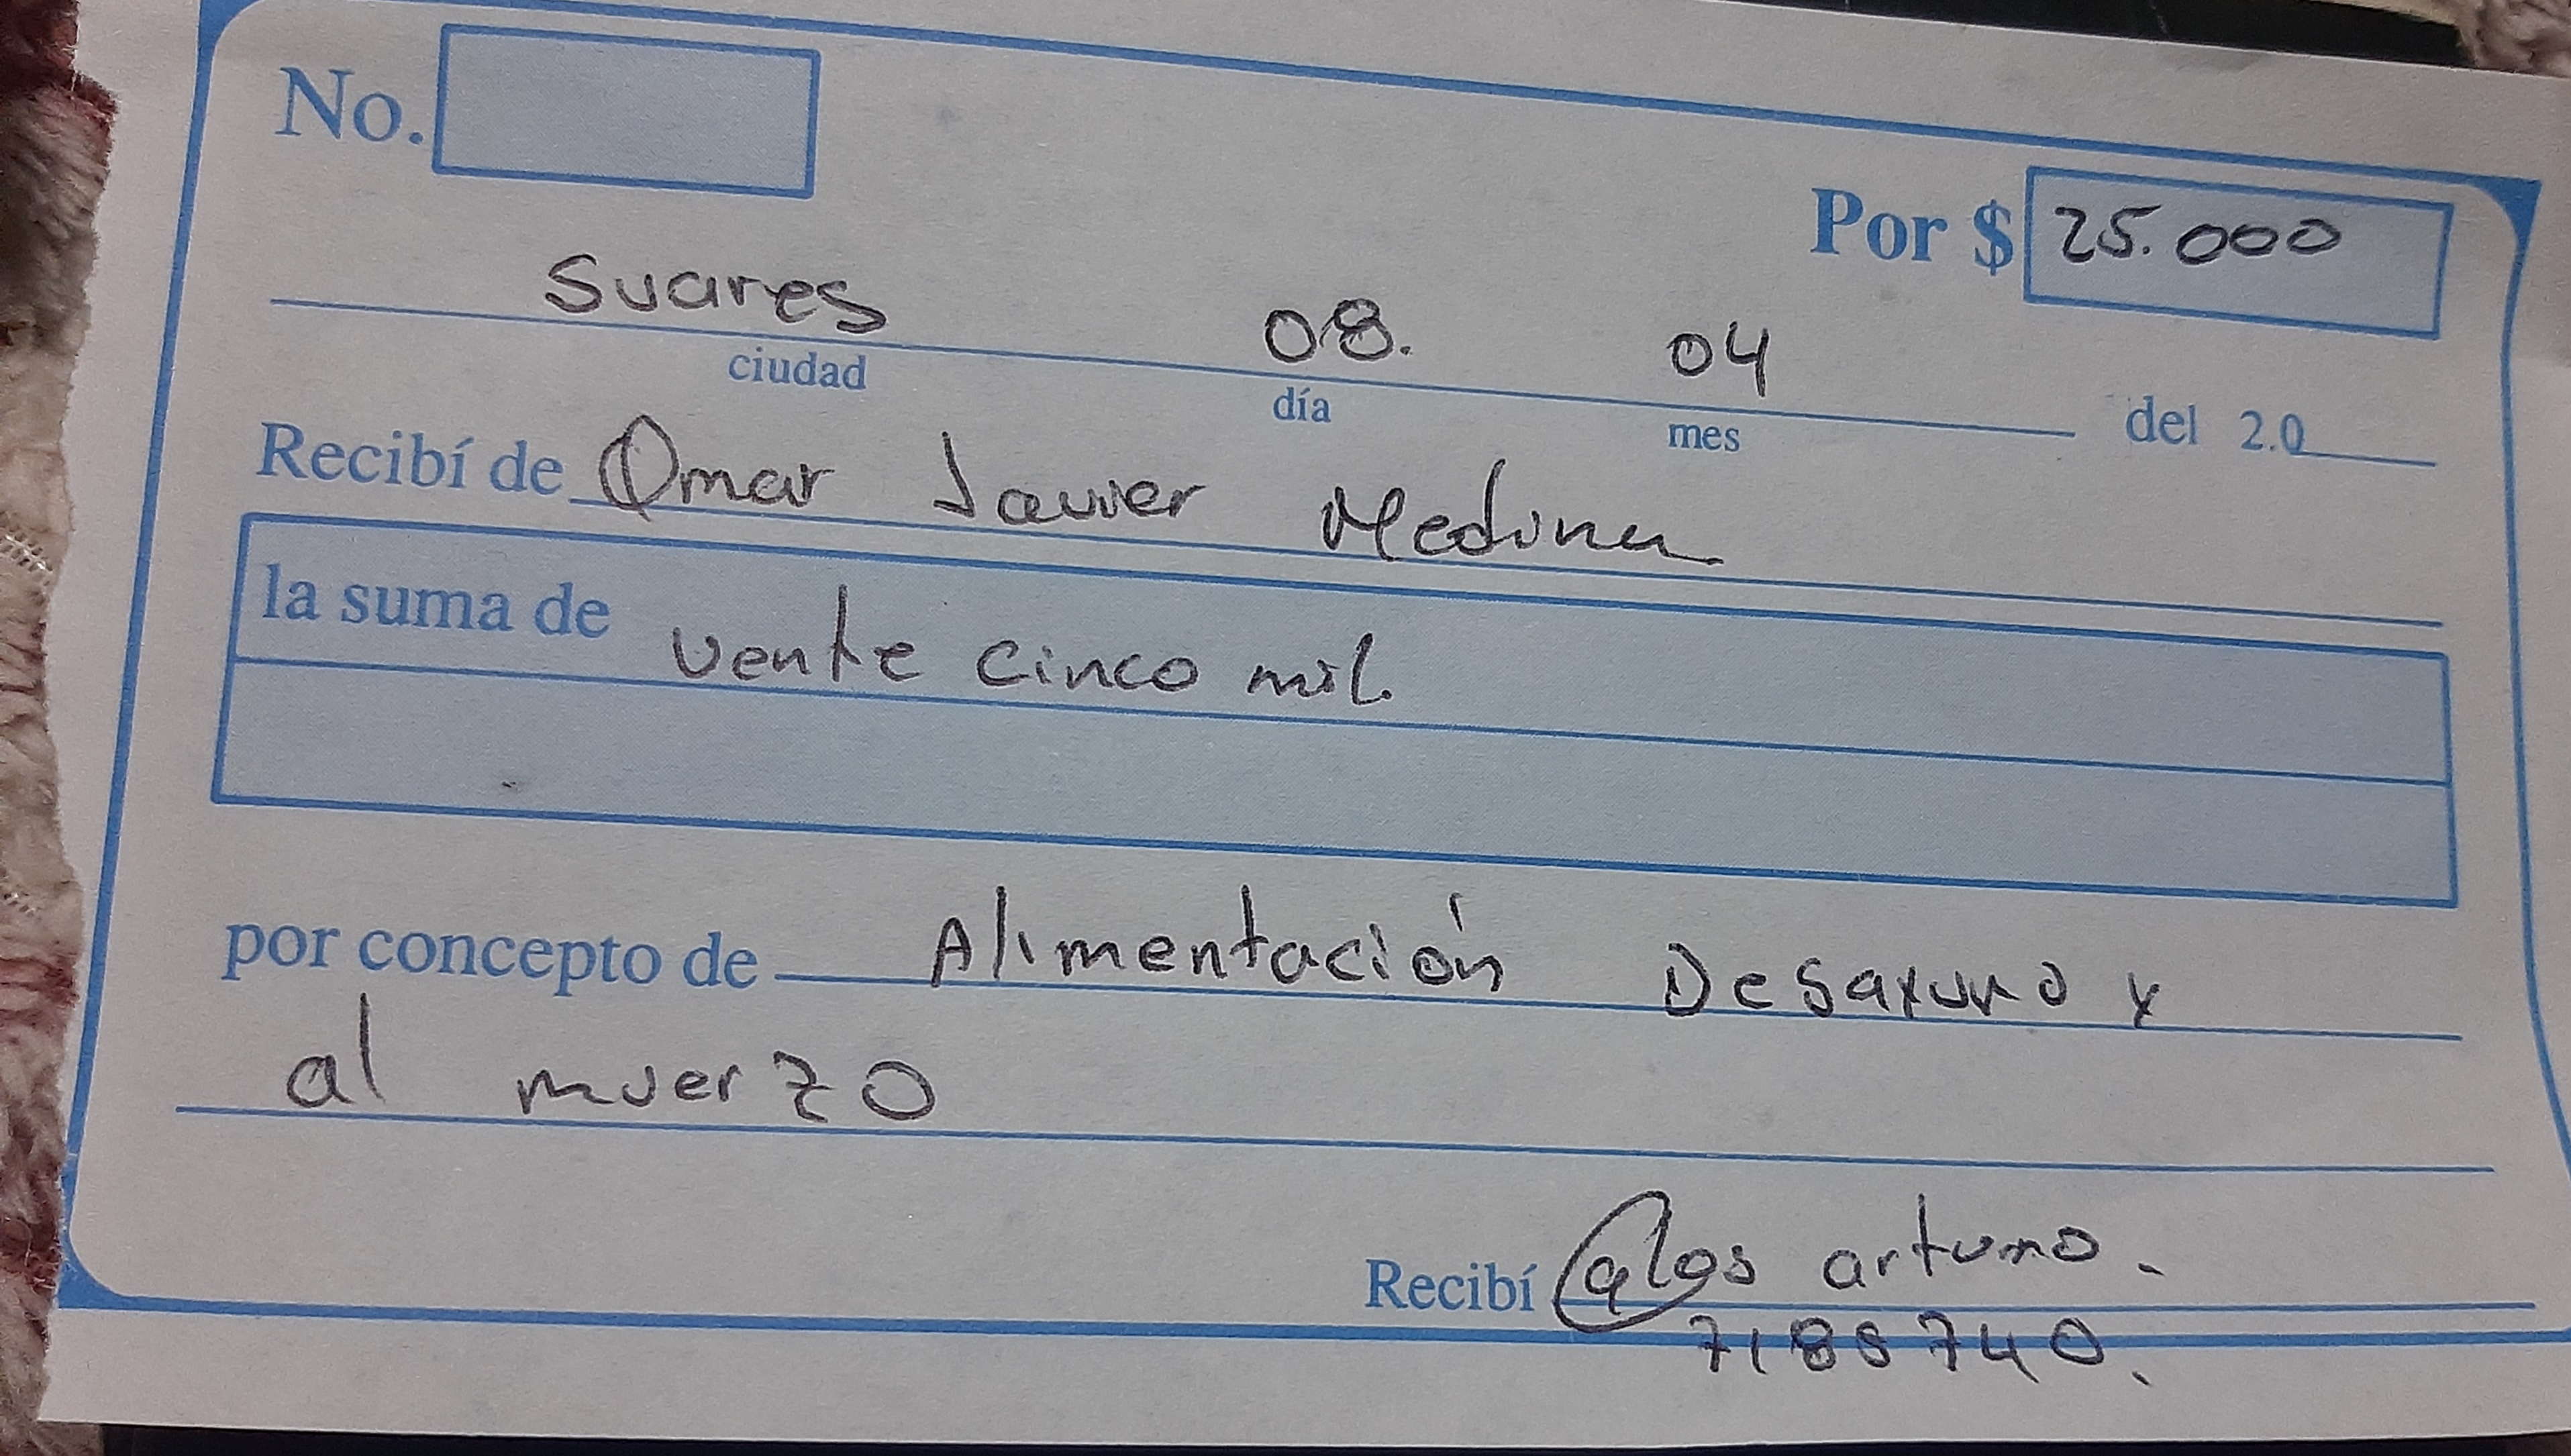 No.
Por $ 25.000
Suares 08. 04
ciudad día mes del 2.0
Recibí de Omar Javier Medina
la suma de vente cinco mil.
por concepto de Alimentación Desayuno y
al muerzo
Recibí Calos arturo.
7185740.